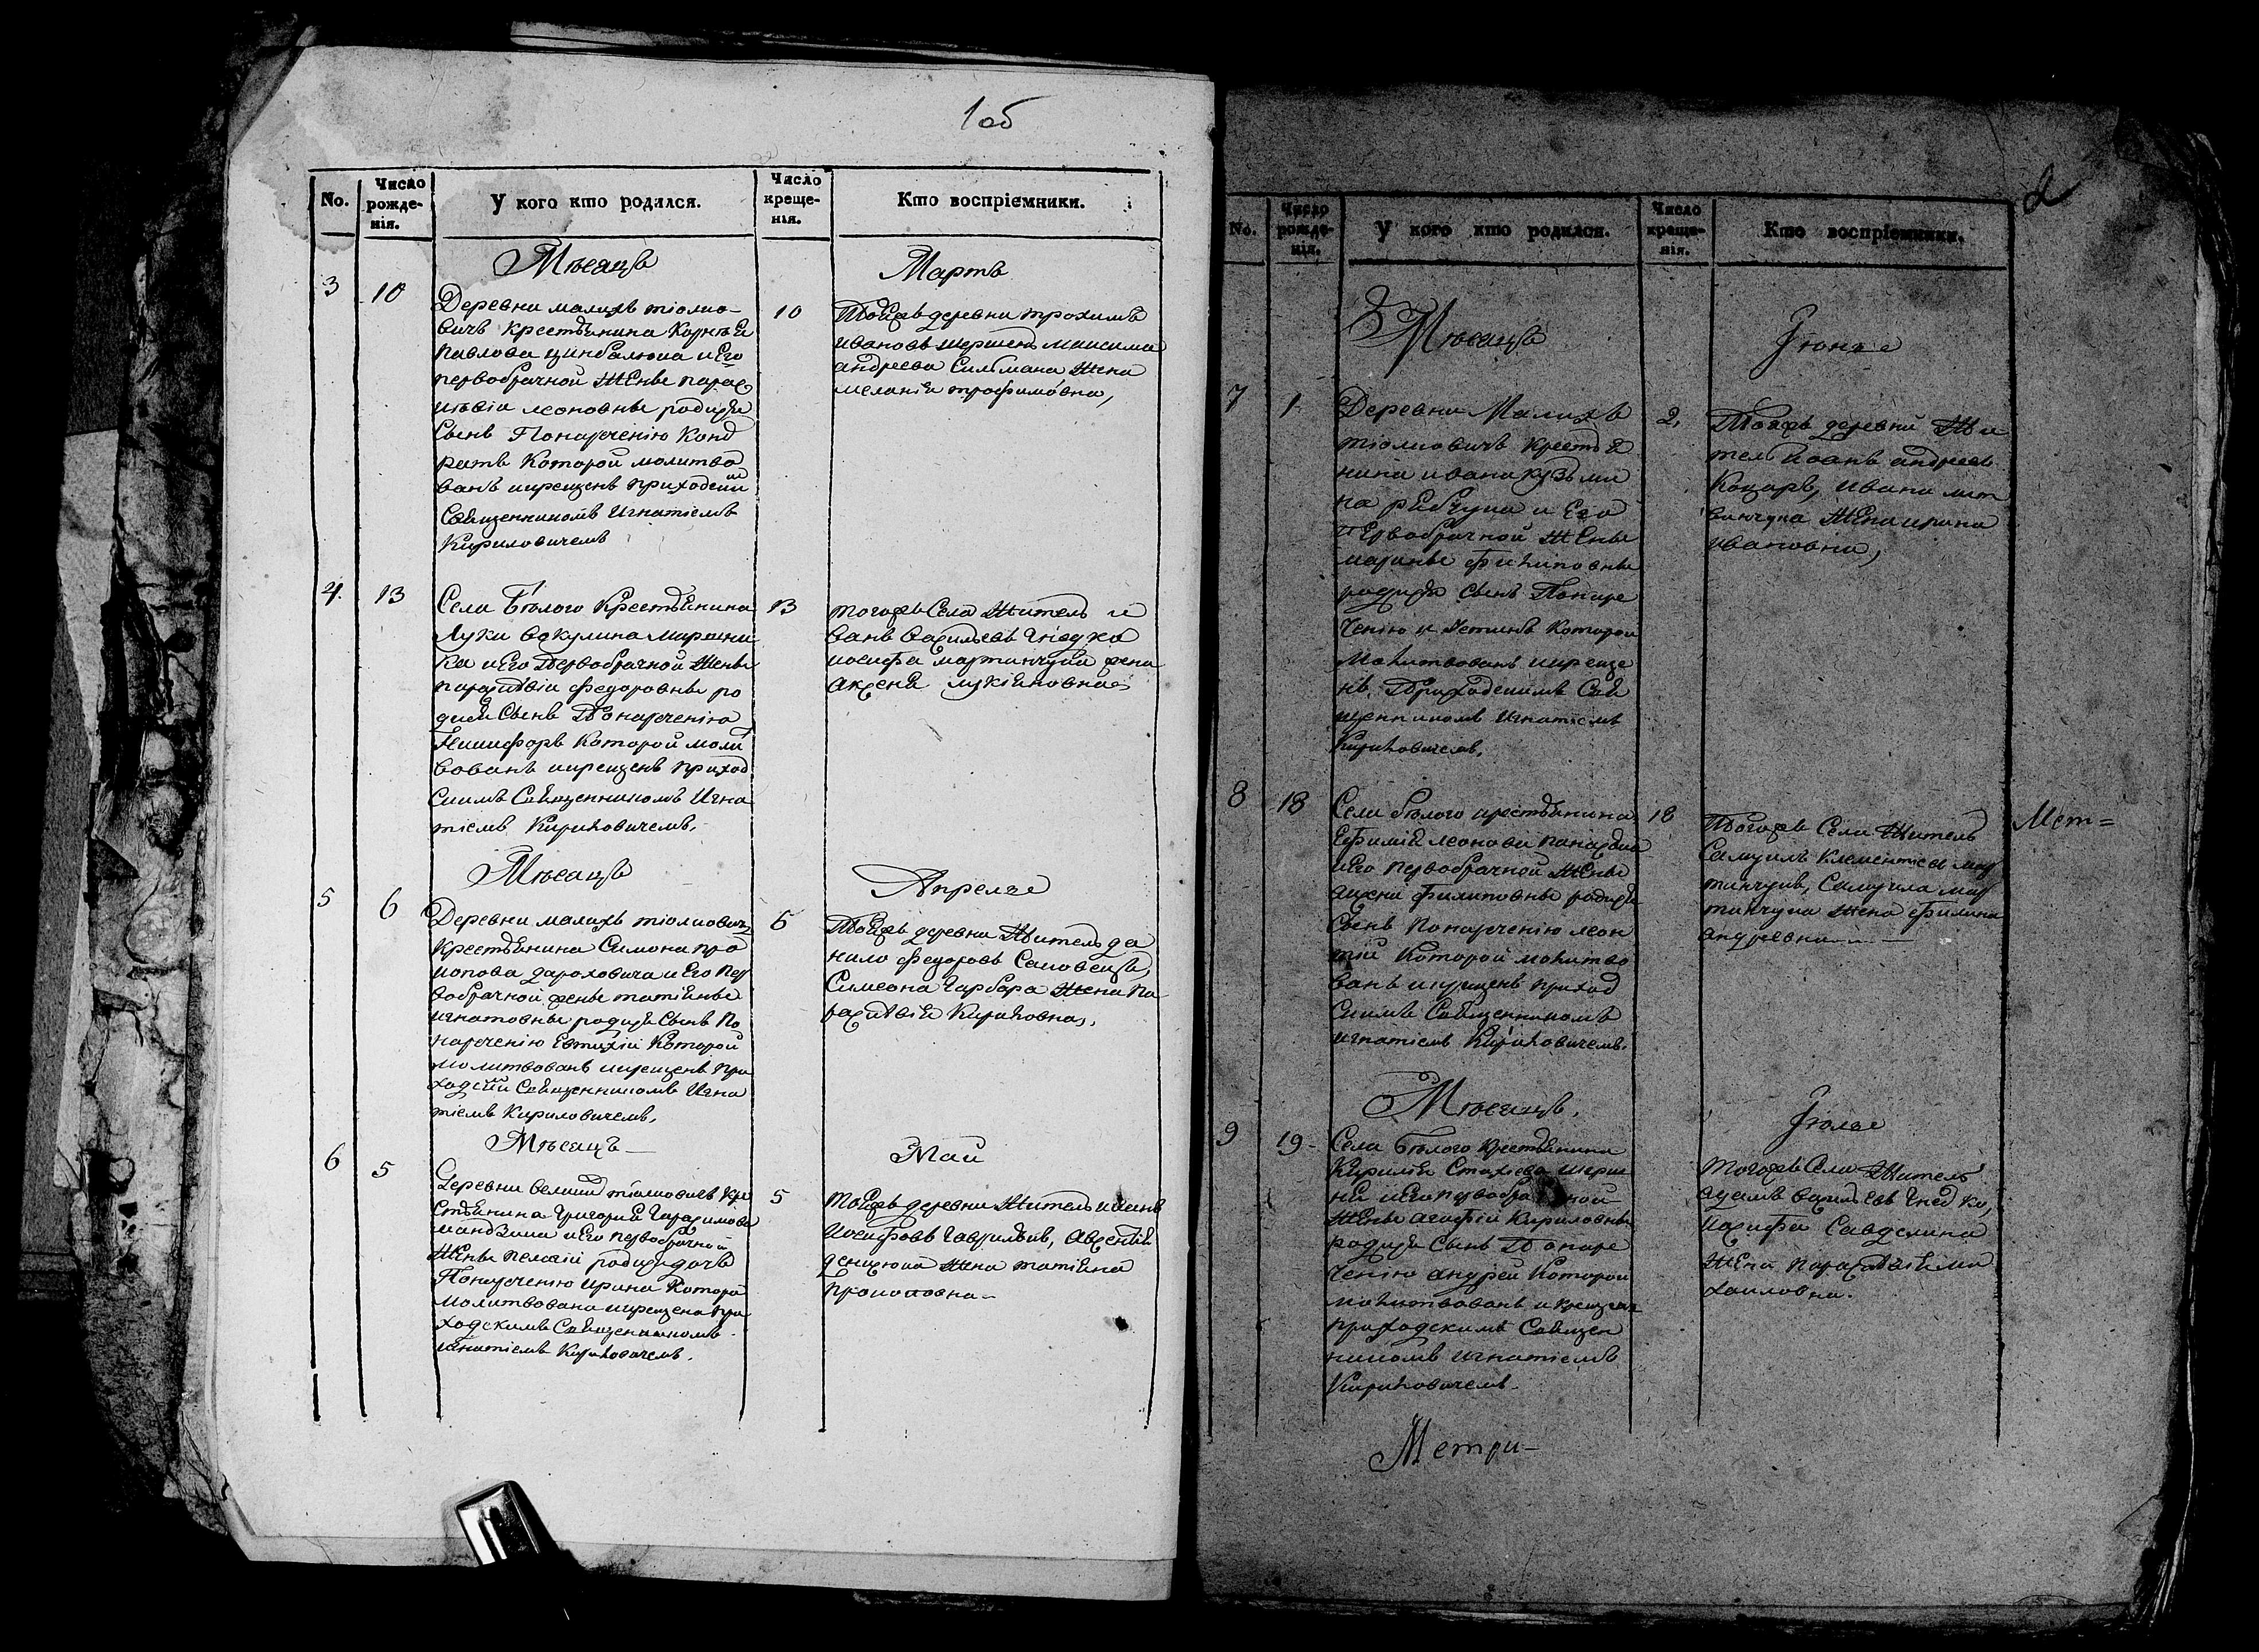 1об
No.
Число рожде- нія.
У кого кто родился.
Число креще- нія.
Кто воспріемники.
Мѣсяцъ
Мартъ
3
10
Деревни малихъ тіолко-
вичъ крестьянина Корнѣя
Павлова цинбалюка и Его
первобрачной Жены парас
кѣвіи леоновны родися
Сынъ Понареченію Конд
ратъ Которой молитво
ванъ и крещенъ приходским
Священникомъ Игнатіемъ
Кириловичемъ
10
Тойжъ деревни трохимъ
ивановъ шершенъ максима
андреева Сильмана Жена
меланія трофимовна,
4.
13
Села Бѣлого Крестьянина
Луки вакулина
ка и Его Первобрачной Жены
параскѣвіи федоровны ро
дися Сынъ Понареченію
Никифоръ Которой молит
вованъ и крещенъ приход
скимъ Священникомъ Игна
тіемъ Кириловичемъ,
13
тогожъ Села Житель и
ванъ василѣевъ гнедко
иосифа мартинчука жена
аксеня лукіяновна
Мѣсяцъ
Апреле
5
6
Деревни малихъ тіолковичъ
Крестьянина Симона про
копова дароховича и Его Пер
вобрачной жены татіяны
игнатовны родися Сынъ По
нареченію Евтихій Которой
молитвованъ и крещенъ при
ходскім Священникомъ Игна
тіемъ Кириловичемъ,
6
Тойжъ деревни Житель да
нило федоровъ
Симеона гарбара Жена Па-
раскѣвія Кириловна,
Мѣсяцъ
Май
6
5
Деревни тіолковичъ Кре
стьянина Григорія Гарасимова
и Его первобрачной
Жены Пелагіи родися дочь
Понареченію Ирина Котора
молитвована и крещена при
ходскимъ Священникомъ
Игнатіемъ Кириловичемъ.
5
тойжъ деревни Житель
Иосифовъ гавриловъ, авксентія
денисюка Жена татіяна
прокоповна
2
No.
Число рожде- нія.
У кого кто родился.
Число креще- нія.
Кто воспріемники.
Мѣсяцъ
Іюнь
7
1
Деревни Малихъ
тіолковичъ крестья
нина ивана кузьми
на рЕбкуна и Его
Первобрачной Жены
марины филиповны
родися сынъ Понаре
ченію Устинъ Которой
молитвованъ и креще
нъ Приходскимъ Свя
щенникомъ Игнатіемъ
Кириловичемъ.
2,
Тойжъ деревни Жи
тель Иоанъ андреевъ
Коцаръ, ивана лит
винчука Жена ирина
ивановна,
8
18
Села бѣлого крестьянина
Ефимія леонова
и Его первобрачной Жены
аксени филиповны родися
Сынъ Понареченію леон
тій Которой молитво
ванъ и крещенъ приход
скимъ Священникомъ
игнатіемъ Кириловичемъ.
18
Тогожъ Села Житель
Самуилъ Клементіевъ мар
тинчукъ, Самуила мар
тинчука Жена
андреевна
Мет=
Мѣсяцъ,
Іюле
9
19
Села Бѣлого крестьянина
Кирилія Стахіева шерше
ня и Его первобрачной
Жены агафіи Кириловны
родися Сынъ Понаре
ченію андрей Которой
молитвованъ и крещенъ
приходскимъ Священ
никомъ игнатіемъ
Кириловичемъ
тогожъ Села Житель
адамъ василѣевъ гнедко,
иосифа
Жена Параскѣвія ми
хаиловна.
Метри-